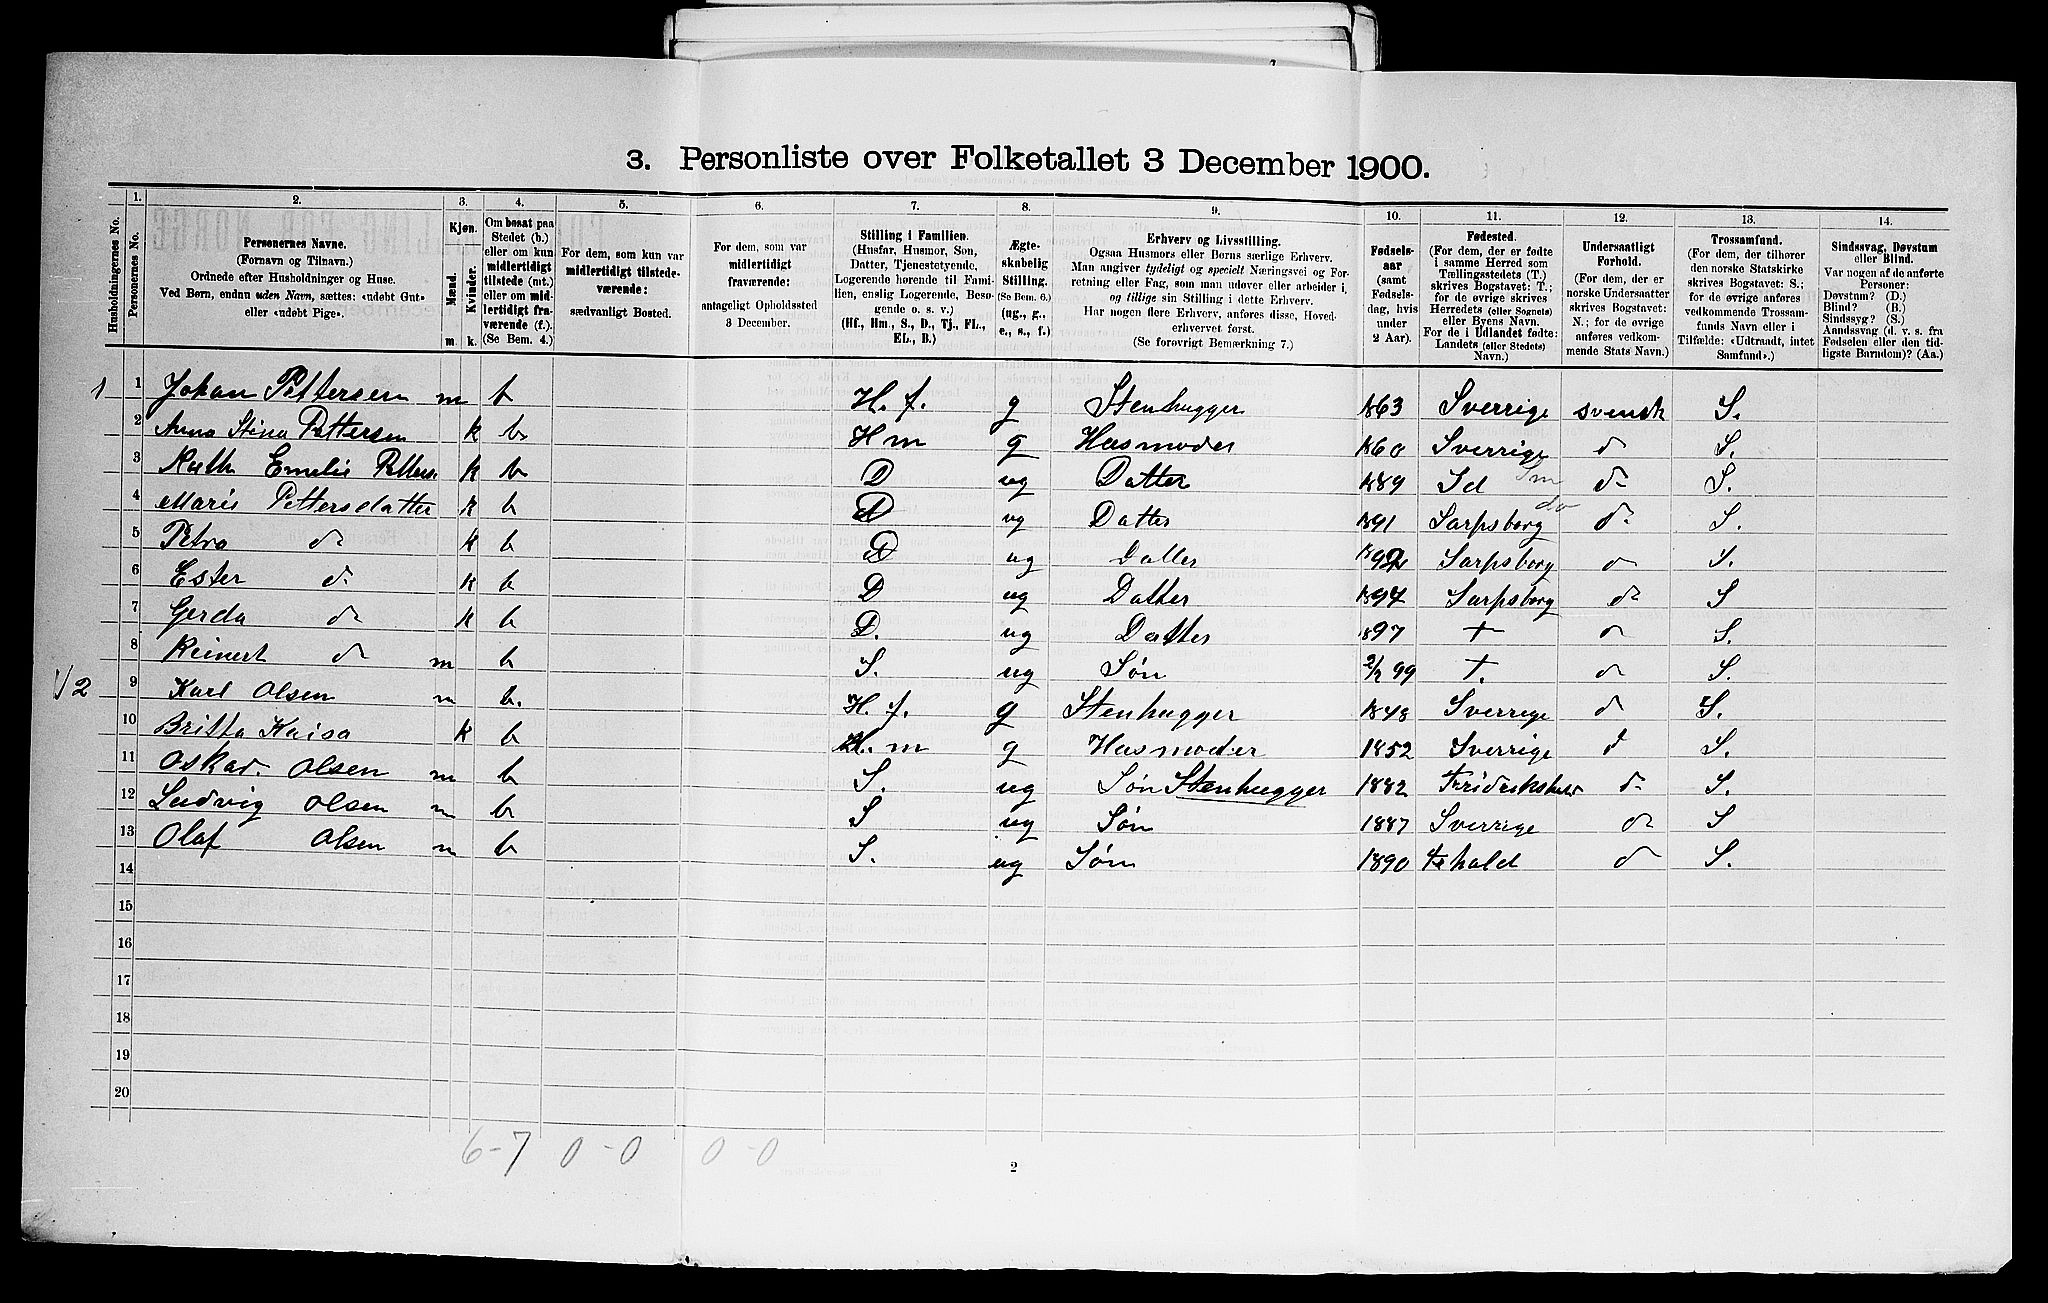 3. Personliste over Folketallet 3 December 1900.
Husholdningernes No.
1. Personernes No.
2. Personernes Navne. (Fornavn og Tilnavn.) Ordnede efter Husholdninger og Huse. Ved Børn, endnu uden Navn, sættes: «udøbt Gut» eller «udøbt Pige».
3. Kjøn. Mænd. m. Kvinder. k.
4. Om bosat paa Stedet (b.) eller om kun midlertidigt tilstede (mt.) eller om midlertidigt fraværende (f.). (Se Bem. 4.)
5. For dem, som kun var midlertidigt tilstedeværende: sædvanligt Bosted.
6. For dem, som var midlertidigt fraværende: antageligt Opholdssted 3 December.
7. Stilling i Familien. (Husfar, Husmor, Søn, Datter, Tjenestetyende, Logerende hørende til Familien, enslig Logerende, Besøgende o. s. v.) (Hf., Hm., S., D., Tj., FL., EL., B.)
8. Ægteskabelig Stilling. (Se Bem. 6.) (ug., g., e., s., f.)
9. Erhverv og Livsstilling. Ogsaa Husmors eller Børns særlige Erhverv. Man angiver tydeligt og specielt Næringsvei og Forretning eller Fag, som man udøver eller arbeider i, og tillige sin Stilling i dette Erhverv. Har nogen flere Erhverv, anføres disse, Hovederhvervet først. (Se forøvrigt Bemærkning 7.)
10. Fødselsaar (samt Fødselsdag, hvis under 2 Aar).
11. Fødested. (For dem, der er fødte i samme Herred som Tællingsstedets (T.) skrives Bogstavet: T.; for de øvrige skrives Herredets (eller Sognets) eller Byens Navn. For de i Udlandet fødte: Landets (eller Stedets) Navn.)
12. Undersaatligt Forhold. (For dem, der er norske Undersaatter skrives Bogstavet: N.; for de øvrige anføres vedkommende Stats Navn.)
13. Trossamfund. (For dem, der tilhører den norske Statskirke skrives Bogstavet: S.; for de øvrige anføres vedkommende Trossamfunds Navn eller i Tilfælde: «Udtraadt, intet Samfund».)
14. Sindssvag, Døvstum eller Blind. Var nogen af de anførte Personer: Døvstum? (D.) Blind? (B.) Sindssyg? (S.) Aandssvag (d. v. s. fra Fødselen eller den tidligste Barndom)? (Aa.)
1 1 Johan Pettersen m b H. f. g Stenhugger 1863 Sverrige svensk S.
2 Anna Stina Pettersen k b. H m g Husmoder 1860 Sverrige do S.
3 Ruth Emelie k b D ug Datter 1889 Id Sm do S.
4 Marie Pettersdatter k b D ug Datter 1891 Sarpsborg do do S.
5 Petra do k b D ug Datter Sarpsborg do S.
6 Ester do k b D ug Datter 1894 Sarpsborg do S
7 Gerda do k b D. ug Datter 1897 T do S.
8 Reinert do m b S. ug Søn 2/7 99 T. do S.
2 9 Karl Olsen m b. H. f. g Stenhugger 1848 Sverrige do S.
10 Britta Kaisa k b H. m g Husmoder 1852 Sverrige do S.
11 Oskar. Olsen m b S. ug Søn Stenhugger 1882 do S.
12 Ludvig Olsen m b S ug Søn 1887 Sverrige do S
13 Olaf Olsen m b S. ug Søn 1890 Frhald do S.
14
15
16
17
18
19
20
6-7 0-0 0-0
2